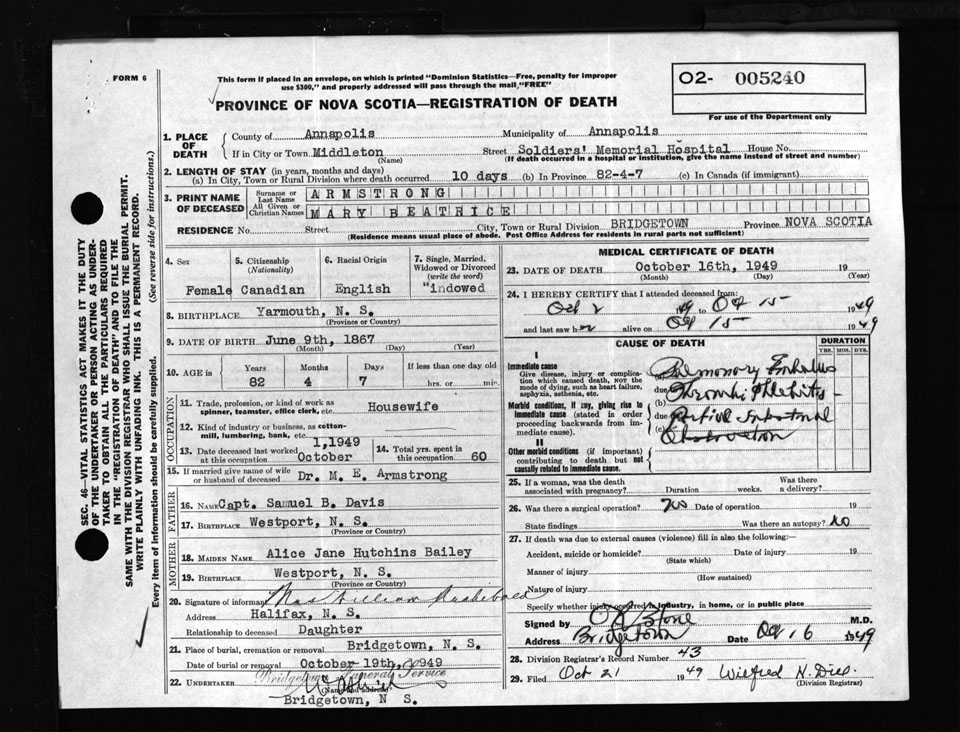 FORM 6
This form if placed in an envelope, on which is printed "Dominion Statistics—Free, penalty for improper
use $300," and properly addressed will pass through the mail "FREE"
PROVINCE OF NOVA SCOTIA—REGISTRATION OF DEATH
O2- 005240
For use of the Department only
SEC. 46—VITAL STATISTICS ACT MAKES IT THE DUTY
OF THE UNDERTAKER OR PERSON ACTING AS UNDER-
TAKER TO OBTAIN ALL THE PARTICULARS REQUIRED
IN THE "REGISTRATION OF DEATH" AND TO FILE THE
SAME WITH THE DIVISION REGISTRAR WHO SHALL ISSUE THE BURIAL PERMIT.
WRITE PLAINLY WITH UNFADING INK. THIS IS A PERMANENT RECORD.
Every item of information should be carefully supplied. (See reverse side for instructions.)
1. PLACE OF DEATH
County of Annapolis Municipality of Annapolis
If in City or Town Middleton Street Soldiers' Memorial Hospital House No.
(Name) (If death occurred in a hospital or institution, give the name instead of street and number)
2. LENGTH OF STAY (in years, months and days)
(a) In City, Town or Rural Division where death occurred 10 days (b) In Province 82-4-7 (c) In Canada (if immigrant)
3. PRINT NAME OF DECEASED
Surname or Last Name ARMSTRONG
All Given or Christian Names MARY BEATRICE
RESIDENCE No. Street City, Town or Rural Division BRIDGETOWN Province NOVA SCOTIA
(Residence means usual place of abode. Post Office Address for residents in rural parts not sufficient)
4. Sex Female
5. Citizenship (Nationality) Canadian
6. Racial Origin English
7. Single, Married, Widowed or Divorced (write the word) "indowed
8. BIRTHPLACE Yarmouth, N. S.
(Province or Country)
9. DATE OF BIRTH June 9th, 1867
(Month) (Day) (Year)
10. AGE in Years Months Days If less than one day old
82 4 7 hrs. or min.
OCCUPATION
11. Trade, profession, or kind of work as
spinner, teamster, office clerk, etc. Housewife
12. Kind of industry or business, as cotton-
mill, lumbering, bank, etc.
13. Date deceased last worked at this occupation October 1,1949
14. Total yrs. spent in this occupation 60
15. If married give name of wife
or husband of deceased Dr. M. E. Armstrong
FATHER
16. Name Capt. Samuel B. Davis
17. BIRTHPLACE Westport, N. S.
(Province or Country)
MOTHER
18. MAIDEN NAME Alice Jane Hutchins Bailey
19. BIRTHPLACE Westport, N. S.
(Province or Country)
20. Signature of informant Mrs William Archibald
Address Halifax, N. S.
Relationship to deceased Daughter
21. Place of burial, cremation or removal Bridgetown, N. S.
Date of burial or removal October 19th, 1949
22. UNDERTAKER Bridgetown Funeral Service
(Name and address)
Bridgetown, N S.
MEDICAL CERTIFICATE OF DEATH
23. DATE OF DEATH October 16th, 1949 19
(Month) (Day) (Year)
24. I HEREBY CERTIFY that I attended deceased from:
Oct 2 1949 to Oct 15 1949
and last saw her alive on Oct 15 1949
CAUSE OF DEATH DURATION
YRS. MOS. DYS.
I
Immediate cause
Give disease, injury or complica-
tion which caused death, not the
mode of dying, such as heart failure,
asphyxia, asthenia, etc.
(a) Pulmonary Embolus
due
Thrombo Phlebitis
Morbid conditions, if any, giving rise to
immediate cause (stated in order
proceeding backwards from im-
mediate cause).
(b)
due Partial Intestinal
(c) Obstruction
II
Other morbid conditions (if important)
contributing to death but not
causally related to immediate cause.
25. If a woman, was the death
associated with pregnancy? Duration weeks. Was there a delivery?
26. Was there a surgical operation? Date of operation 19
State findings Was there an autopsy? No
27. If death was due to external causes (violence) fill in also the following:—
Accident, suicide or homicide? Date of injury 19
(State which)
Manner of injury
(How sustained)
Nature of injury
Specify whether injury occurred in industry, in home, or in public place
Signed by Stone M.D.
Address Bridgetown Date Oct 16 1949
28. Division Registrar's Record Number 43
29. Filed Oct 21 1949 Wilfred
(Division Registrar)